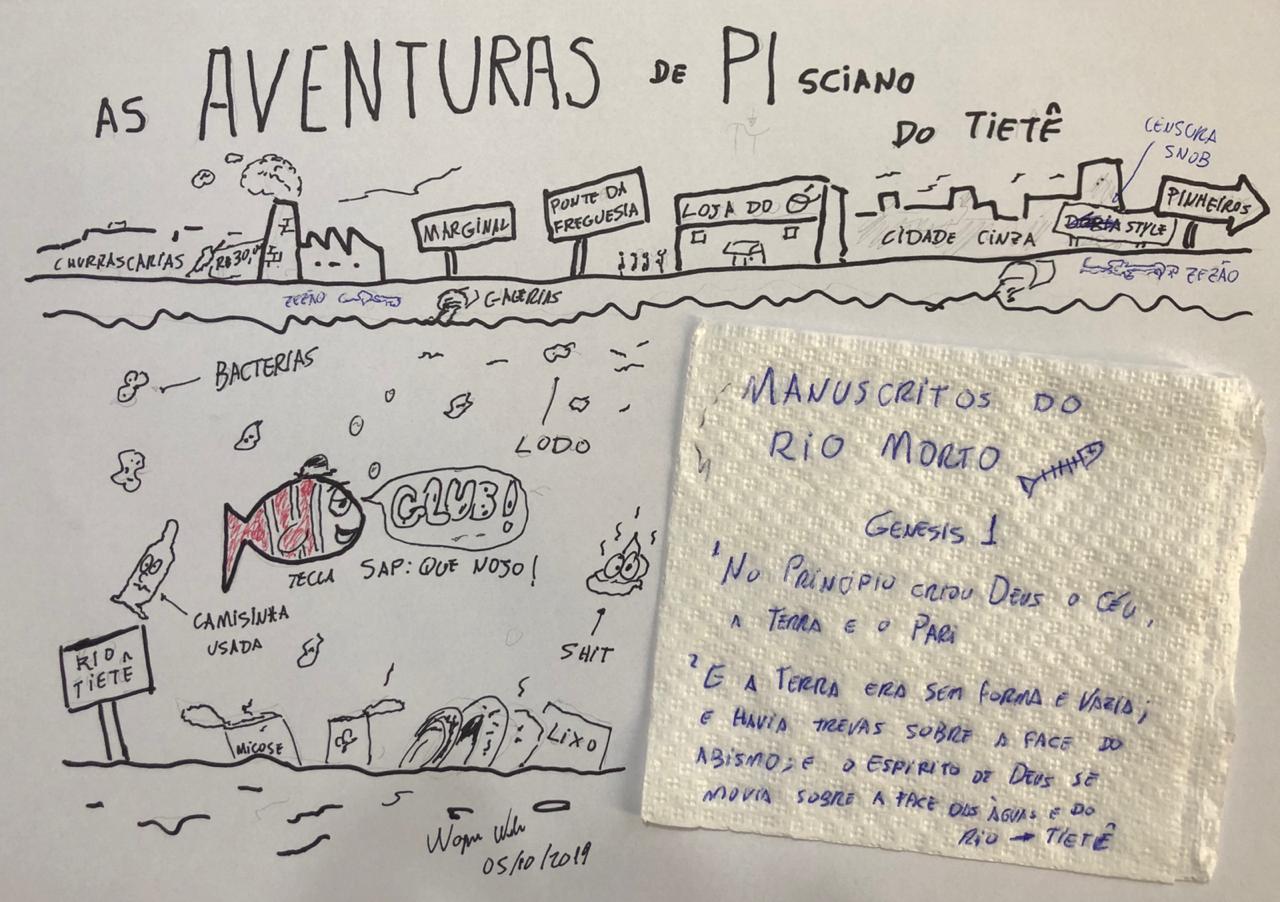 AS AVENTURAS DE PISCIANO
DO TIETÊ
CENSURA
SNOB
CHURRASCARIAS
R$30,
MARGINAL
PONTE DA
FREGUESIA
LOJA DO Ó
CIDADE CINZA
DORIA STYLE
PINHEIROS
ZEZÃO
GALERIAS
ZEZÃO
BACTERIAS
LODO
GLUB!
TECLA SAP: QUE NOJO!
CAMISINHA
USADA
SHIT
RIO
TIETE
MICOSE
LIXO
05/10/2019
MANUSCRITOS DO
RIO MORTO
GENESIS 1
1 NO PRINCÍPIO CRIOU DEUS O CÉU,
A TERRA E O PARI
2 E A TERRA ERA SEM FORMA E VAZIA;
E HAVIA TREVAS SOBRE A FACE DO
ABISMO; E O ESPÍRITO DE DEUS SE
MOVIA SOBRE A FACE DAS ÀGUAS E DO
RIO → TIETÊ